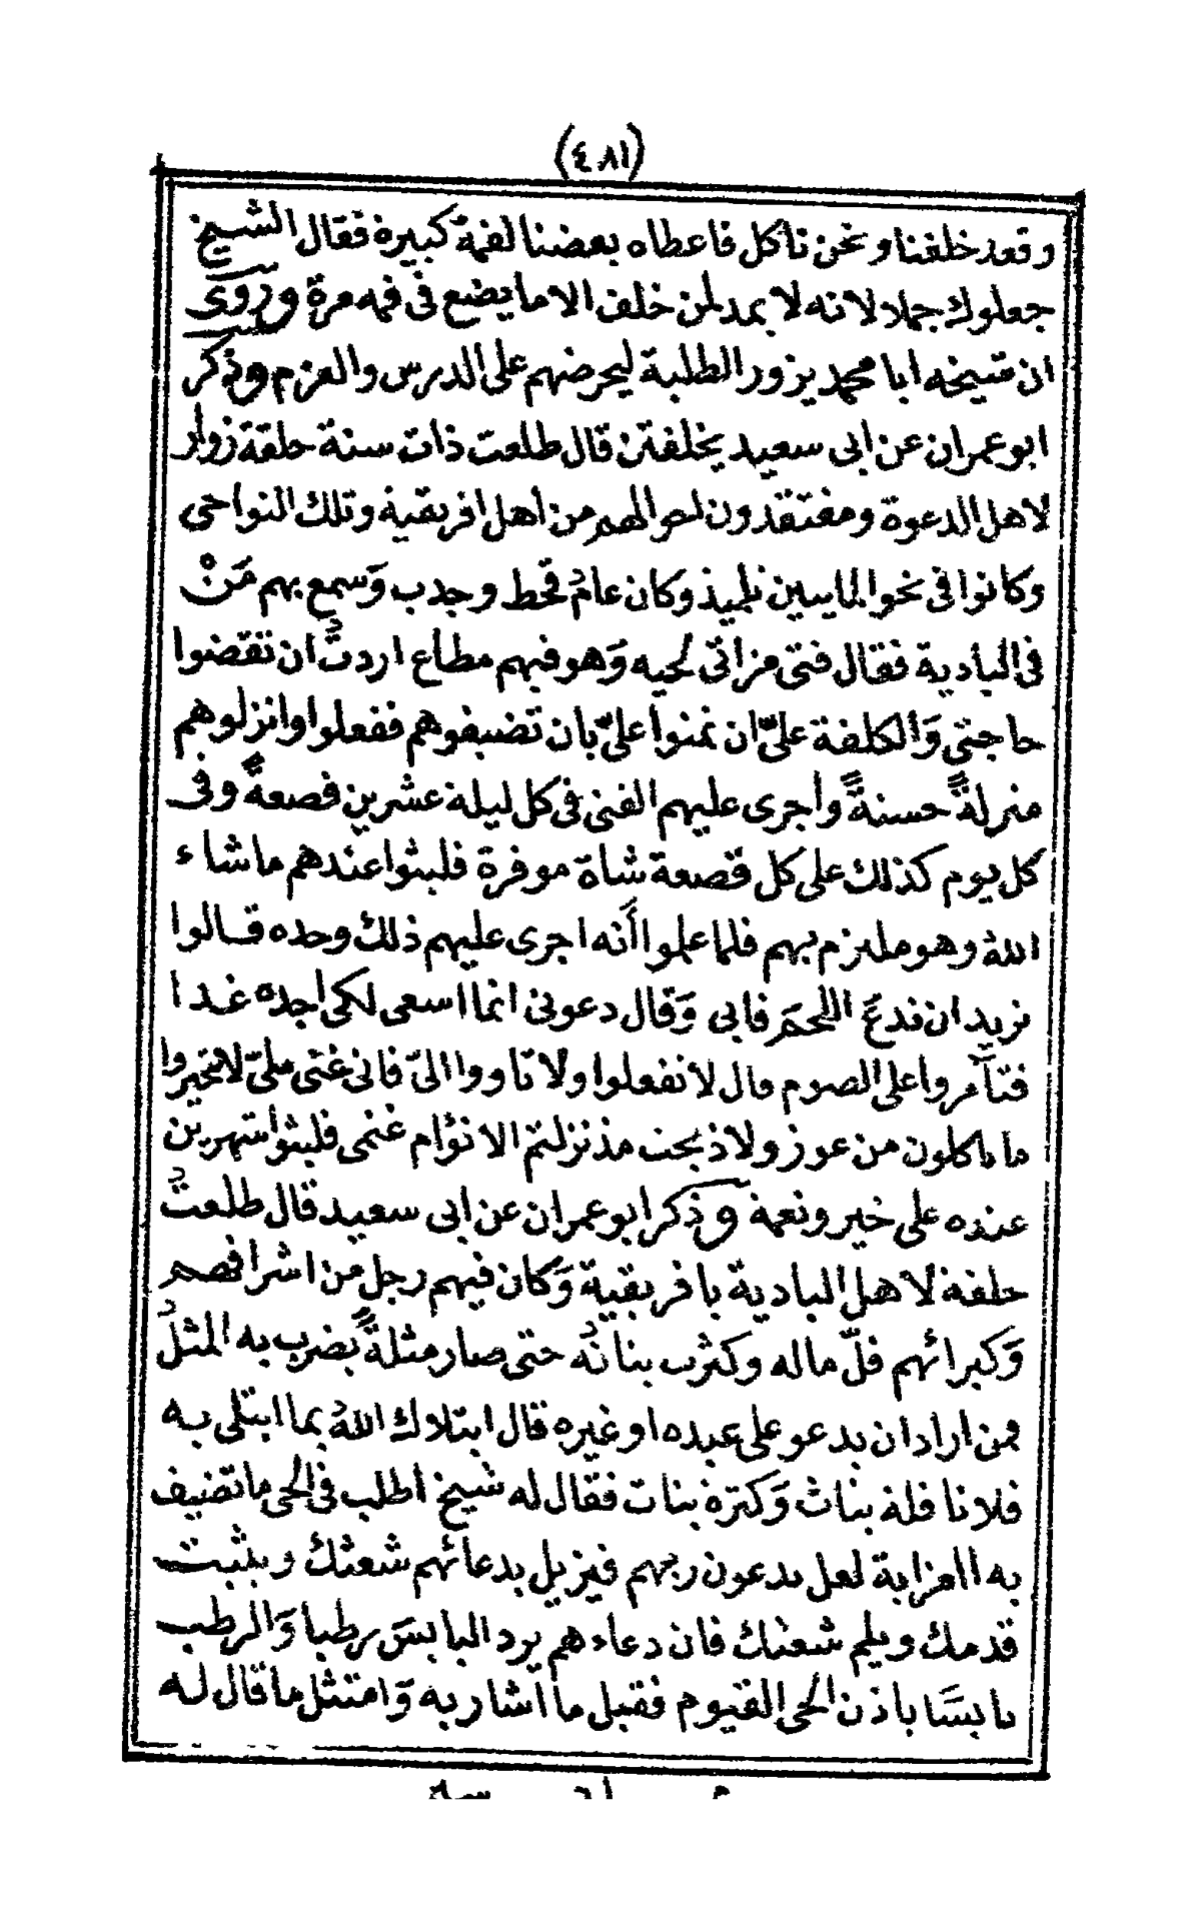 (٤٨١)
وقعد خلفنا ونحن نأكل فاعطاه بعضنا لقمة كبيرة فقال الشيخ
جعلوك جملا لانه لا يمد لمن خلف الا ما يضع في فمه مرة وروى
ان شيخه ابا محمد يزور الطلبة ليحرضهم على الدرس والعزم وذكر
ابو عمران عن ابي سعيد يخلفتن قال طلعت ذات سنة حلقة زوار
لاهل الدعوة ومفتقدون احوالهم من أهل افريقية وتلك النواحي
وكانوا في نحو المايتين تلميذ وكان عامُ قحط وجدب وَسمع بهم مَنْ
في البادية فقال فتى مزاتي لحيه وَهو فيهم مطاع اردتُ ان تقضوا
حاجتي وَالكلفة عليّ ان تمنوا عليّ بان تضيفوهم ففعلوا وانزلوهم
منزلةً حسنةً وأجرى عليهم الفتى في كل ليلة عشرين قصعةً وفي
كل يوم كذلك على كل قصعة شاة موفرة فلبثوا عندهم ما شاء
اللهُ وهو ملتزم بهم فلما علموا أنه اجرى عليهم ذلك وحده قالوا
نريد ان ندعَ اللحمَ فابى وَقال دعوني انما اسعى لكي اجده غدا
فتآمروا على الصوم قال لا تفعلوا ولا تاووا اليّ فاني غني مليّ لا تخبروا
ما تاكلون من عوز ولا ذبحت مذ نزلتم الا تؤام غنمي فلبثوا شهرين
عنده على خير ونعمة وذكر ابو عمران عن ابي سعيد قال طلعتُ
حلقة لأهل البادية بافريقية وَكان فيهم رجل من اشرافهم
وَكبرائهم قلّ ماله وكثرت بناتُه حتى صار مثلةً يضرب به المثلُ
فمن اراد ان يدعو على عبده او غيره قال ابتلاك اللهُ بما ابتلى به
فلانا قلة بنات وَكثرة بنات فقال له شيخ أطلب في الحي ما تضيف
به العزابة لعل يدعون ربهم فيزيل بدعائهم شعثك ويثبت
قدمك ويلم شعثك فان دعاءهم يرد اليابسَ رطبا وَالرطب
يابسَا باذن الحي القيوم فقبل ما أشار به وَامتثل ما قال له